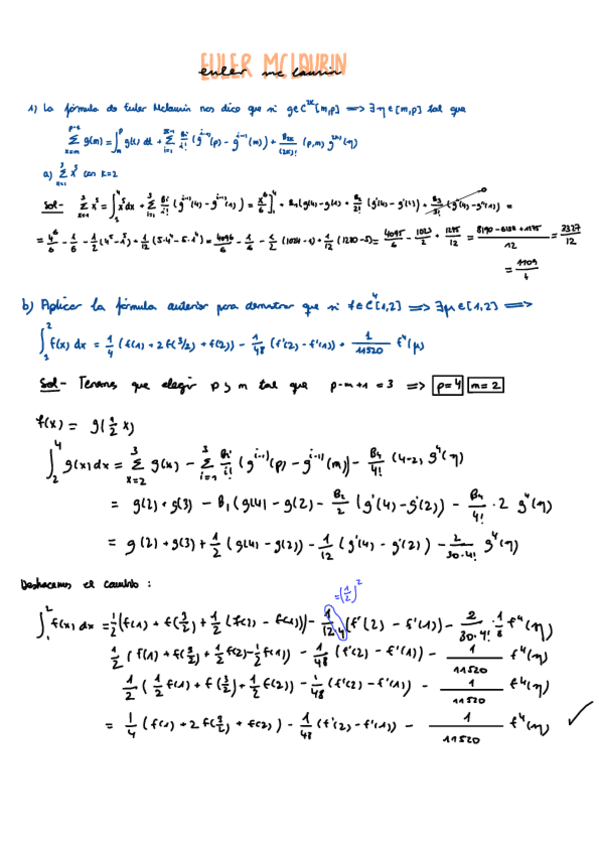 EULER MCLAURIN
euler mc laurin
1) La fórmula de Euler Mclaurin nos dice que si g∈C^{2k}[m,p] ⟹ ∃η∈[m,p] tal que
∑_{x=m}^{p-1} g(m) = ∫_m^p g(t) dt + ∑_{i=1}^{2k-1} Bi/i! (g^{i-1)}(p) - g^{i-1)}(m)) + B_{2k}/(2k)! (p,m) g^{2k)}(η)
a) ∑_{x=1}^3 x^5 con k=2
Sol- ∑_{x=1}^3 x^5 = ∫_1^4 x^5 dx + ∑_{i=1}^3 Bi/i! (g^{i-1)}(4) - g^{i-1)}(1)) = x^6/6]_1^4 + B_1(g(4)-g(1)) + B_2/2 (g'(4)-g'(1)) + B_3/3! (g''(4)-g''(1)) =
= 4^6/6 - 1/6 - 1/2 (4^5-1^5) + 1/12 (5·4^4-5·1^4) = 4096/6 - 1/6 - 1/2 (1024-1) + 1/12 (1280-5) = 4095/6 - 1023/2 + 1275/12 = 8190-6138+1275/12 = 3327/12
= 1109/4
b) Aplicar la fórmula anterior para demostrar que si f∈C^4[1,2] ⟹ ∃μ∈[1,2] ⟹
∫_1^2 f(x) dx = 1/4 (f(1) + 2f(3/2) + f(2)) - 1/48 (f'(2) - f'(1)) + 1/11520 f^4(μ)
Sol- Tenemos que elegir p y m tal que p-m+1 = 3 ⟹ p=4 m=2
f(x) = g(1/2 x)
∫_2^4 g(x)dx = ∑_{x=2}^3 g(x) - ∑_{i=1}^3 Bi/i! (g^{i-1)}(p) - g^{i-1)}(m)) - B_4/4! (4-2) g^4(η)
= g(2) + g(3) - B_1(g(4) - g(2) - B_2/2 (g'(4)-g'(2)) - B_4/4! · 2 g^4(η)
= g(2) + g(3) + 1/2 (g(4) - g(2)) - 1/12 (g'(4) - g'(2)) - 2/30·4! g^4(η)
Deshacemos el cambio :
=(1/2)^2
∫_1^2 f(x) dx = 1/2 (f(1) + f(3/2) + 1/2 (f(2) - f(1))) - 1/12·4 (f'(2) - f'(1)) - 2/30·4! · 1/8 f^4(η)
1/2 (f(1) + f(3/2) + 1/2 f(2) - 1/2 f(1)) - 1/48 (f'(2) - f'(1)) - 1/11520 f^4(η)
1/2 (1/2 f(1) + f(3/2) + 1/2 f(2)) - 1/48 (f'(2) - f'(1)) - 1/11520 f^4(η)
= 1/4 (f(1) + 2f(3/2) + f(2)) - 1/48 (f'(2) - f'(1)) - 1/11520 f^4(η) ✓